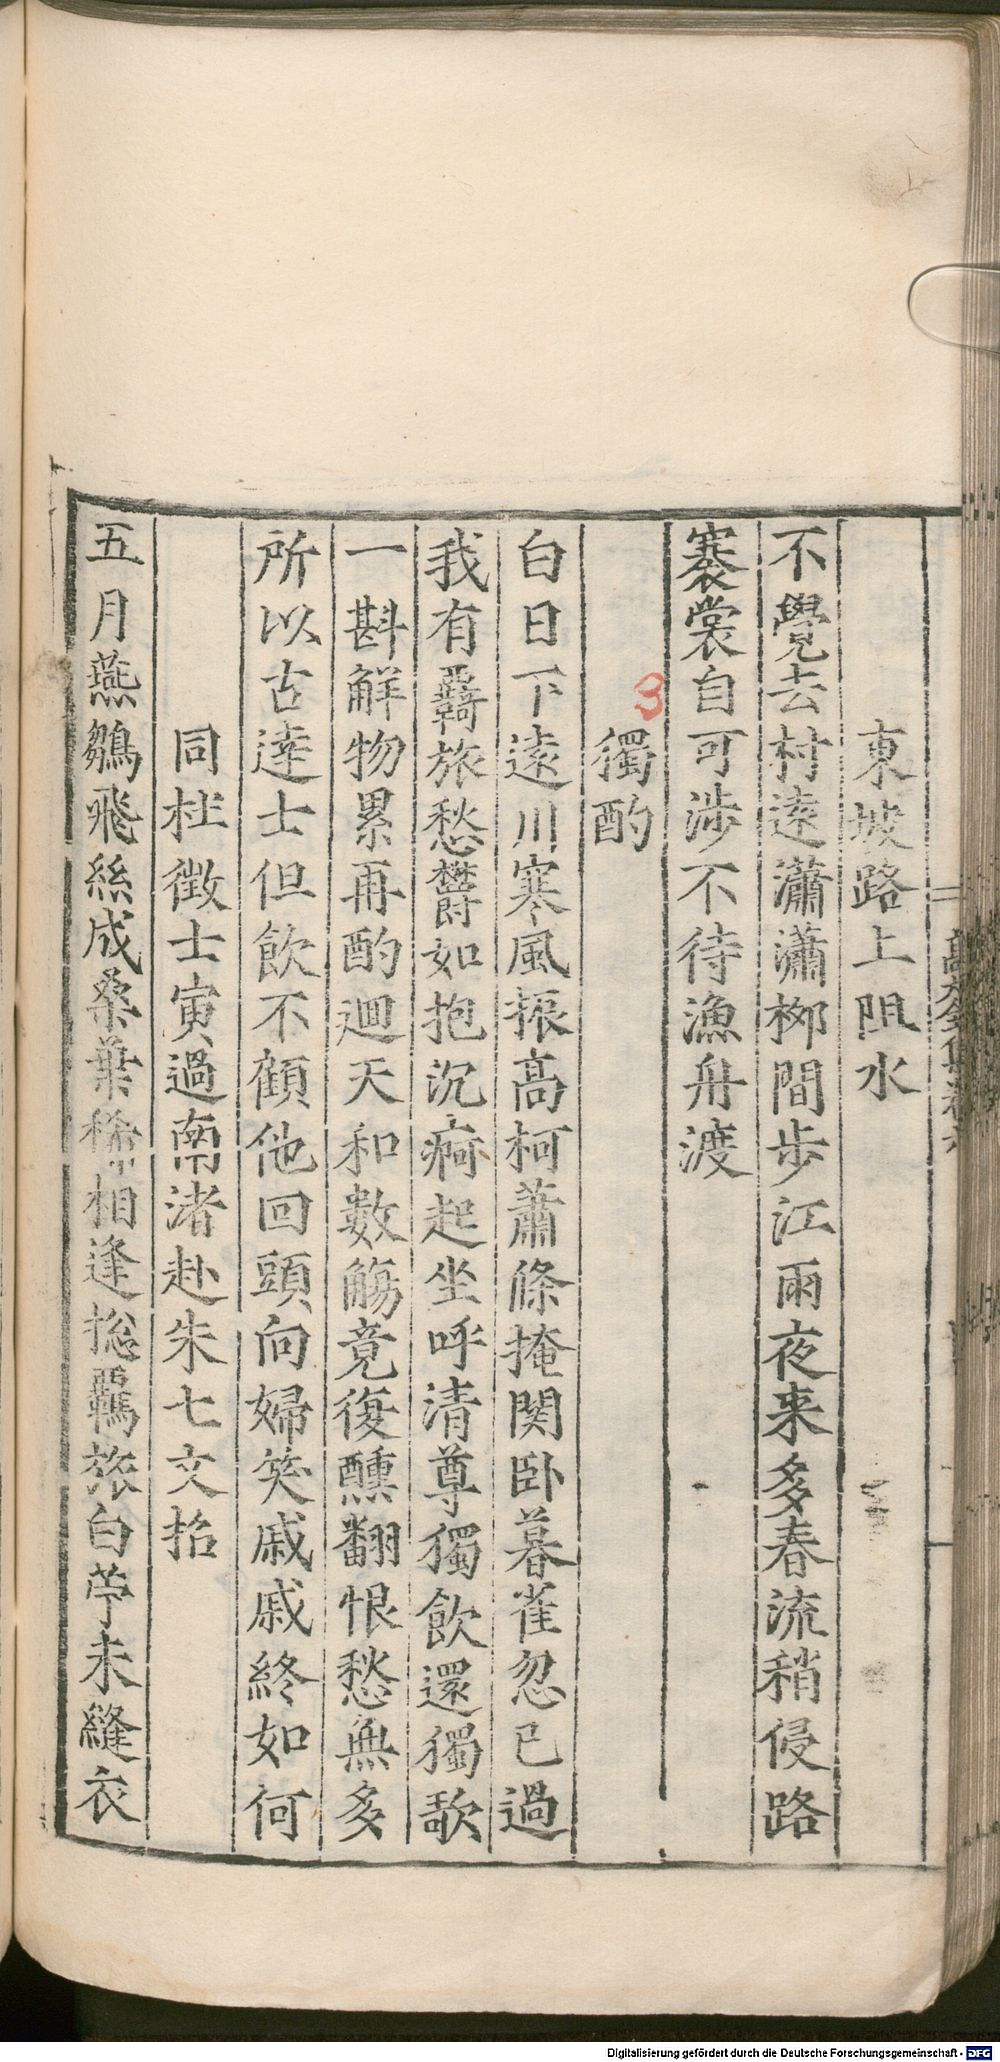 東坡路上阻水
不覺去村遠瀟瀟栁間步江雨夜来多春流稍侵路
褰裳自可涉不待漁舟渡
3
獨酌
白日下遠川寒風振高柯蕭條掩関卧暮雀忽已過
我有羇旅愁欝如抱沉痾起坐呼清尊獨飲還獨歌
一斟解物累再酌廻天和數觴竟復醺翻恨愁無多
所以古達士但飲不顧他回頭向婦笑戚戚終如何
同杜徵士寅過南渚赴朱七文招
五月燕鶵飛絲成桑葉稀相逢揔羈旅白苧未縫衣
Digitalisierung gefördert durch die Deutsche Forschungsgemeinschaft - DFG